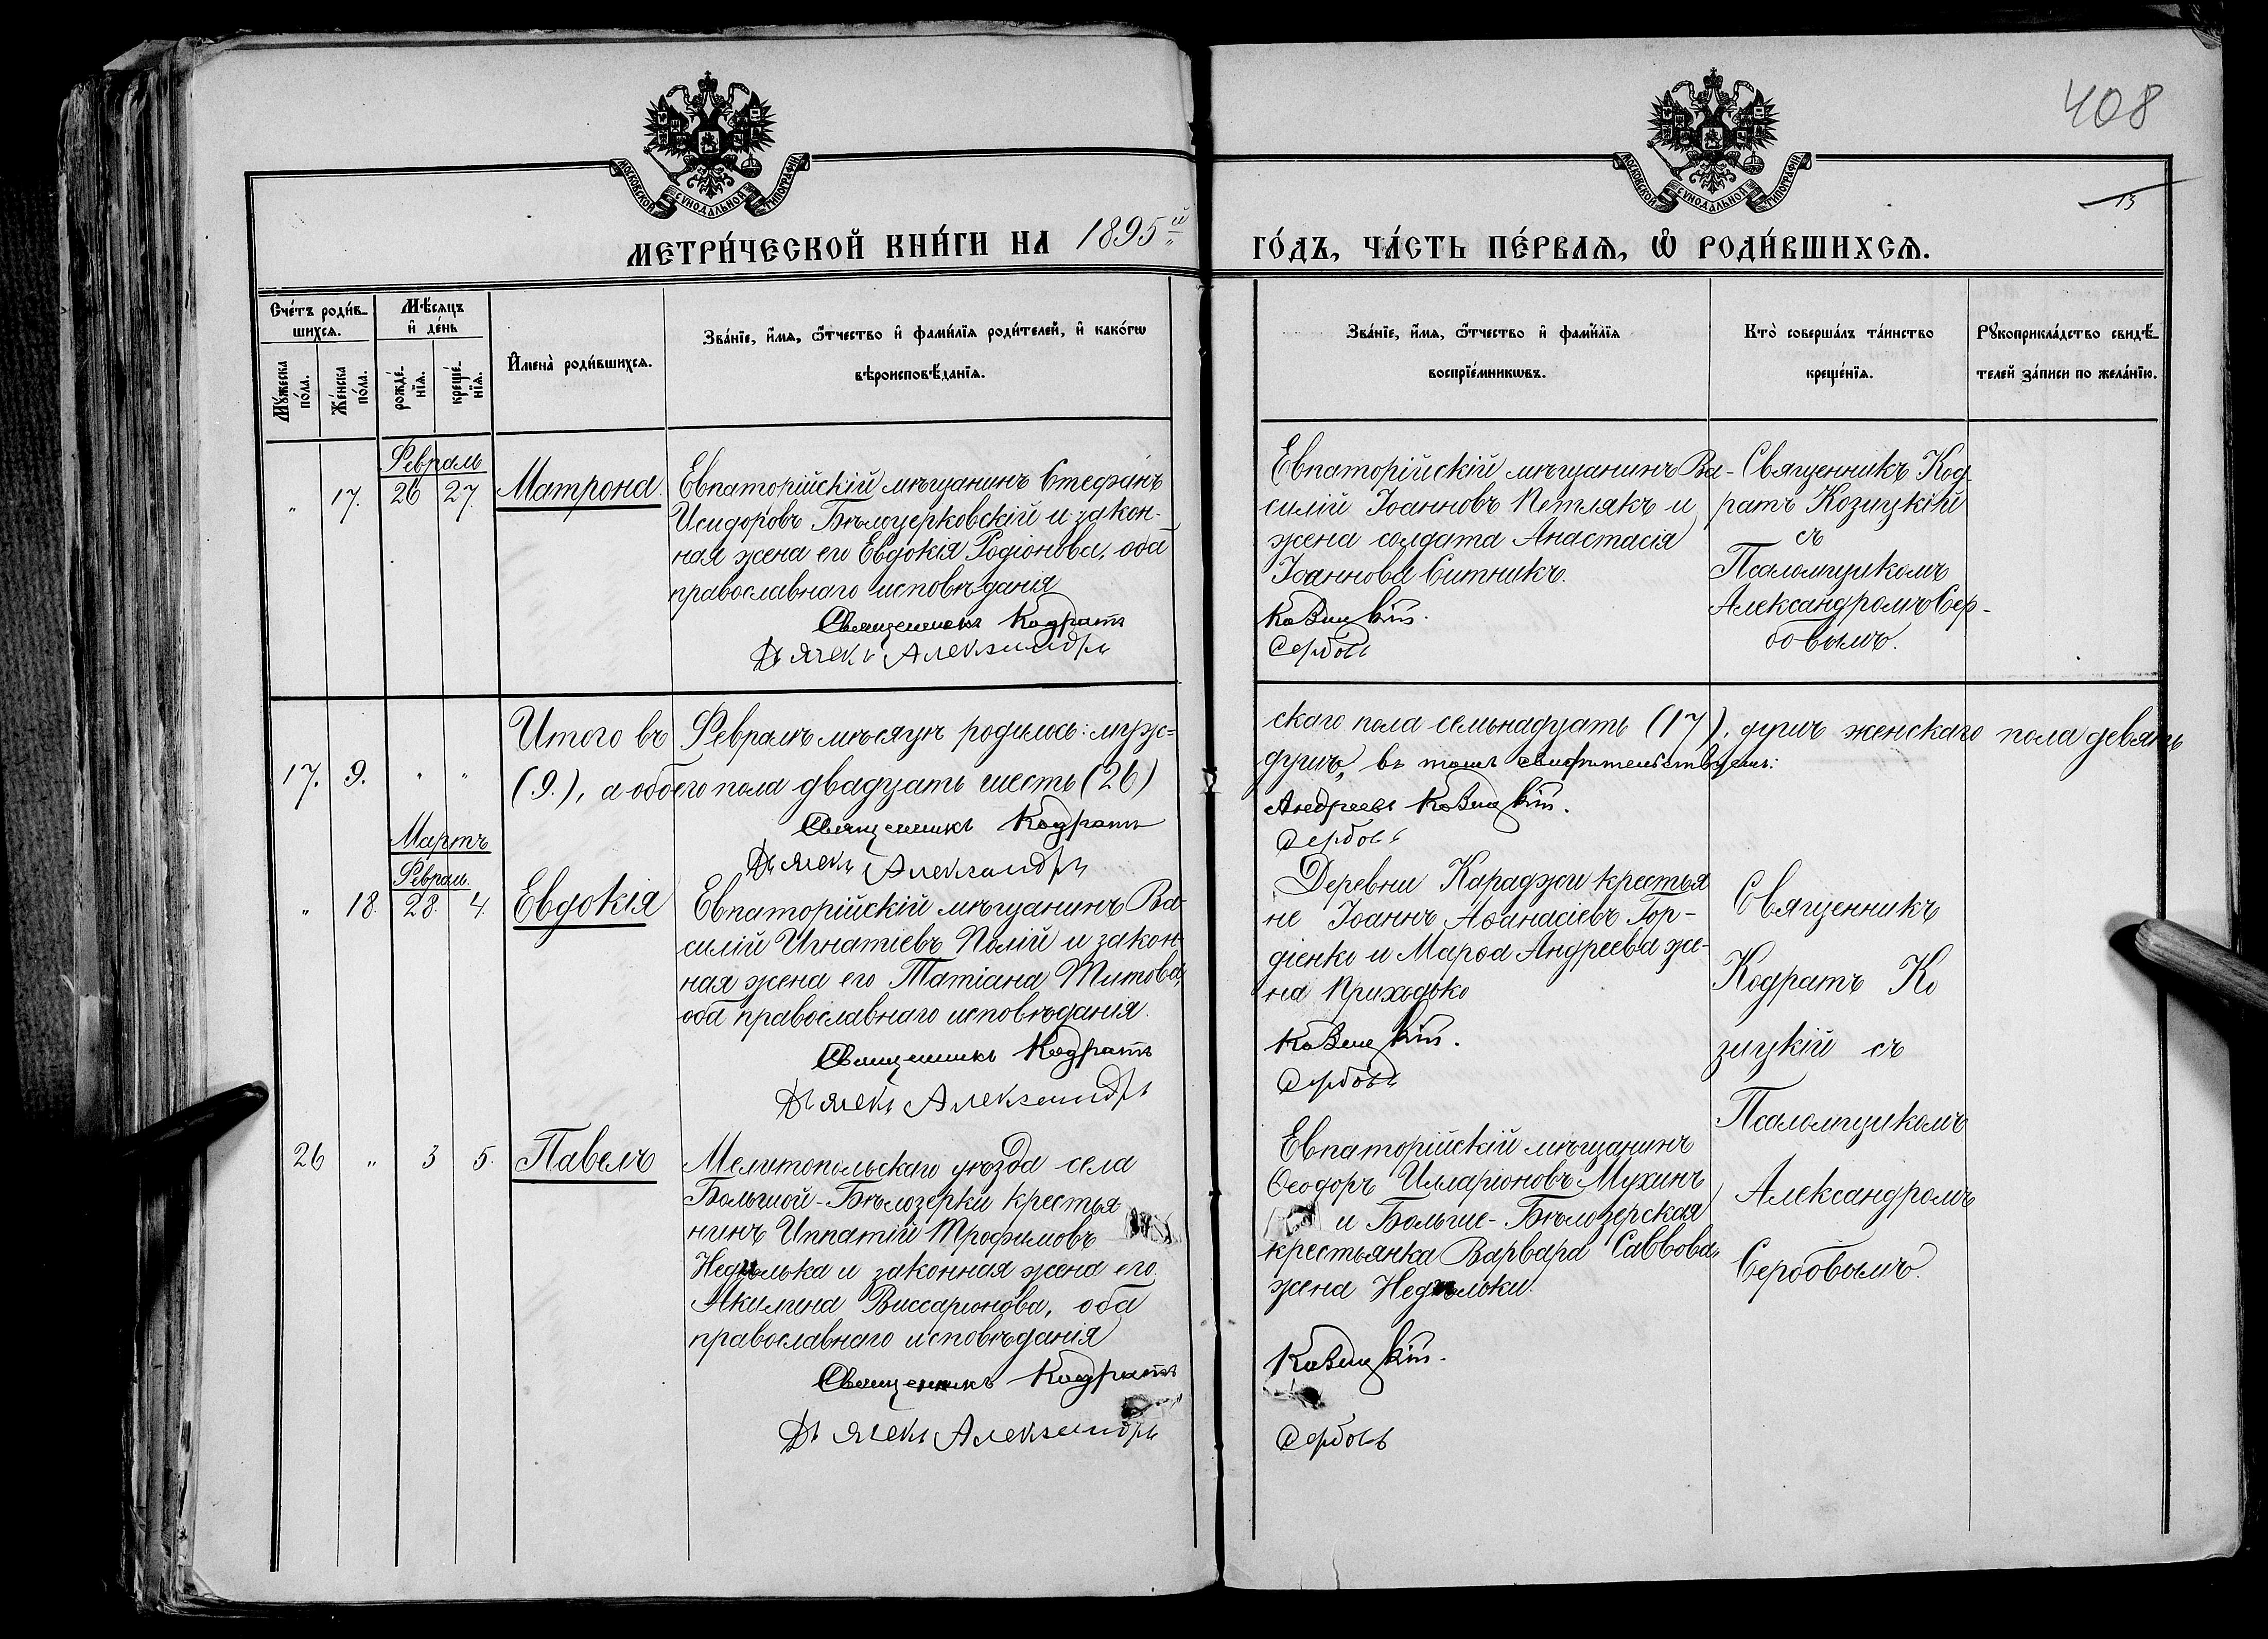 408
МОСКОВСКОЙ СѴНОДАЛЬНОЙ ТИПОГРАФІИ
МОСКОВСКОЙ СѴНОДАЛЬНОЙ ТИПОГРАФІИ
МЕТРИ́ЧЕСКОЙ КНИ́ГИ НА 1895й
ГО́ДЪ, ЧА́СТЬ ПЕ́РВАѦ, Ѡ РОДИ́ВШИХСѦ.
Сче́тъ роди́в-
шихсѧ.
Мѣ́сѧцъ
и де́нь
Мꙋ́жеска
по́ла.
Же́нска
по́ла.
рожде́-
нїѧ.
креще́-
нїѧ.
Имена̀ роди́вшихсѧ.
Зва́нїе, и́мѧ, ѻ́тчество и фами́лїѧ роди́телей, и како́гѡ
вѣроисповѣ́данїѧ.
Зва́нїе, и́мѧ, ѻ́тчество и фами́лїѧ
воспрїе́мникѡвъ.
Кто̀ соверша́лъ та́инство
креще́нїѧ.
Рꙋкоприкла́дство свидѣ́-
телей за́писи по жела́нїю.
Февраль
" 17. 26 27. Матрона.
Евпаторійскій мѣщанинъ Стефанъ
Исидоровъ Бѣлоцерковскій и закон-
ная жена его Евдокія Родіонова, оба
православнаго исповѣданія
Священникъ Кодратъ
Дьячекъ Александръ
Евпаторійскій мѣщанинъ Ва-
силій Іоанновъ Петлякъ и
жена солдата Анастасія
Іоаннова Ситникъ.
Козицкій.
Сербовъ
Священникъ Код-
ратъ Козицкій
съ
Псаломщикомъ
Александромъ Сер-
бовымъ.
Итого въ Февралѣ мѣсяцѣ родилось: муже-
скаго пола семьнадцать (17), душъ женскаго пола девять
17. 9. " " (9.), а обоего пола двадцать шесть (26)
душъ, въ томъ свидѣтельствуемъ:
Священникъ Кодратъ
Андреевъ Козицкій.
Дьячекъ Александръ
Сербовъ
Мартъ
Феврал.
" 18. 28. 4. Евдокія
Евпаторійскій мѣщанинъ Ва-
силій Игнатіевъ Полій и закон-
ная жена его Татіана Титова,
оба православнаго исповѣданія.
Священникъ Кодратъ
Дьячекъ Александръ
Деревни Караджи крестья
не Іоаннъ Аѳанасіевъ Гор-
діенко и Марѳа Андреева же-
на Приходько
Козицкій.
Сербовъ
Священникъ
Кодратъ Ко
зицкій съ
Псаломщикомъ
Александромъ
Сербовымъ.
26 " 3 5. Павелъ
Мелитопольскаго уѣзда села
Большой-Бѣлозерки крестья
нинъ Ипатій Трофимовъ
Недѣлька и законная жена его
Акилина Виссаріонова, оба
православнаго исповѣданія
Священникъ Кодратъ
Дьячекъ Александръ
Евпаторійскій мѣщанинъ
Ѳеодоръ Илларіоновъ Мухинъ
и Больше-Бѣлозерская
крестьянка Варвара Саввова
жена Недѣльки.
Козицкій.
Сербовъ